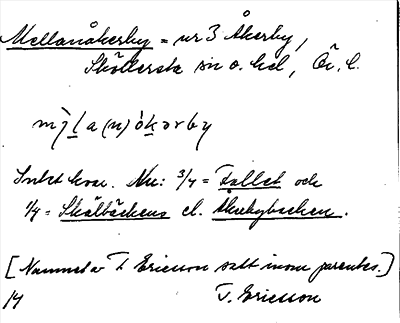 Mellanåkerby = nr 3 Åkerby,
Sköllersta sn o. hd, Ör. l.
a (n) ò k ə r b y
Intet kvar. Nu: 3/4 = Fallet och
1/4 = Skålbäckens el. Åkerbybacken.
[Namnet av T. Ericsson satt inom parentes.]
14 T. Ericsson